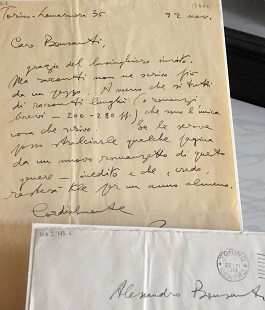 Torino - Lamarmora 35
22 nov.
Caro Bonsanti,
grazie del lusinghiero invito.
Ma racconti non ne scrivo più
da un pezzo. A meno che si tratti
di racconti lunghi (o romanzi
brevi - 200-280 ff) che sono l'unica
cosa che scrivo. Se le serve
posso stralciarle qualche pagina
da un nuovo romanzetto di questo
genere - inedito e che, credo,
resterà tale per un anno almeno.
Cordialmente
TORINO
Alessandro Bonsanti